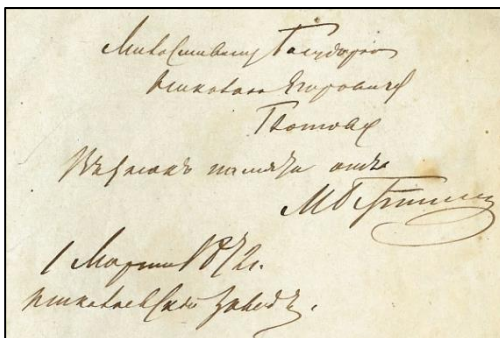 Милостивому Государю
Николаю Егоровичу
въ знакъ памяти отъ
1 Марта 1872 г.
Николаевский заводъ.